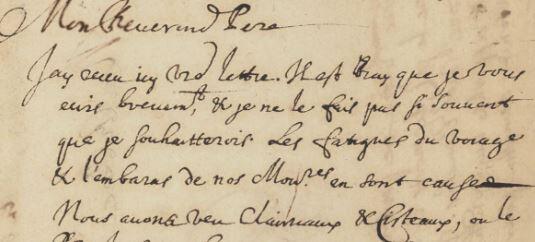 Mon Reverend Pere
Jay receu icy vre lettre. Il est vray que je vous
ecris brevemt, & je ne le fais pas si souvent
que je souhaitterois. Les fatigues du voiage
& l'embaras de nos Mou.res en sont cause
Nous avons veu Clairvaux & Cisteaux, ou le